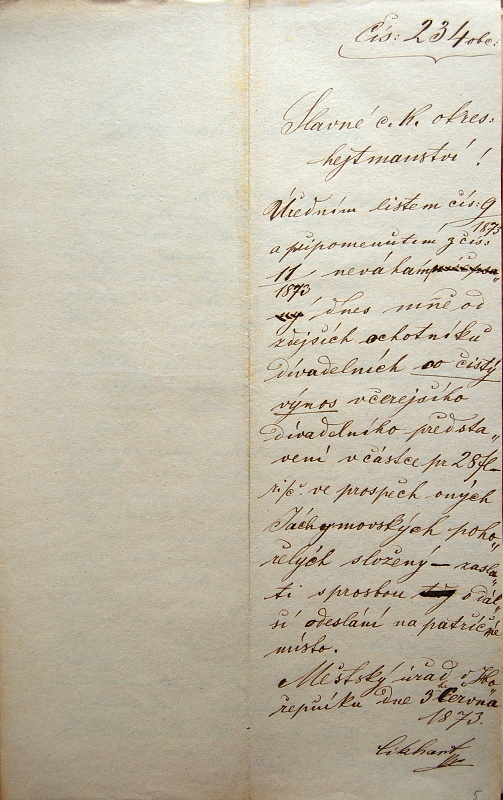 Čís: 234 obc:
Slavné c. k. okres-
hejtmanství!
Úředním listem čís: 9
1873
a připomenutím z čís:
11 neváhám
1873
dnes mně od
zdejších ochotníků
divadelních co čistý
výnos včerejšího
divadelního předsta„
vení v částce pr 28 fl
ve prospěch oných
Jáchymovských poho„
řelých složený – zasla„
ti s prosbou o dal„
sí odeslání na patřičné
místo.
Městský úřad v Ho„
řepníku dne 3. června
1873.